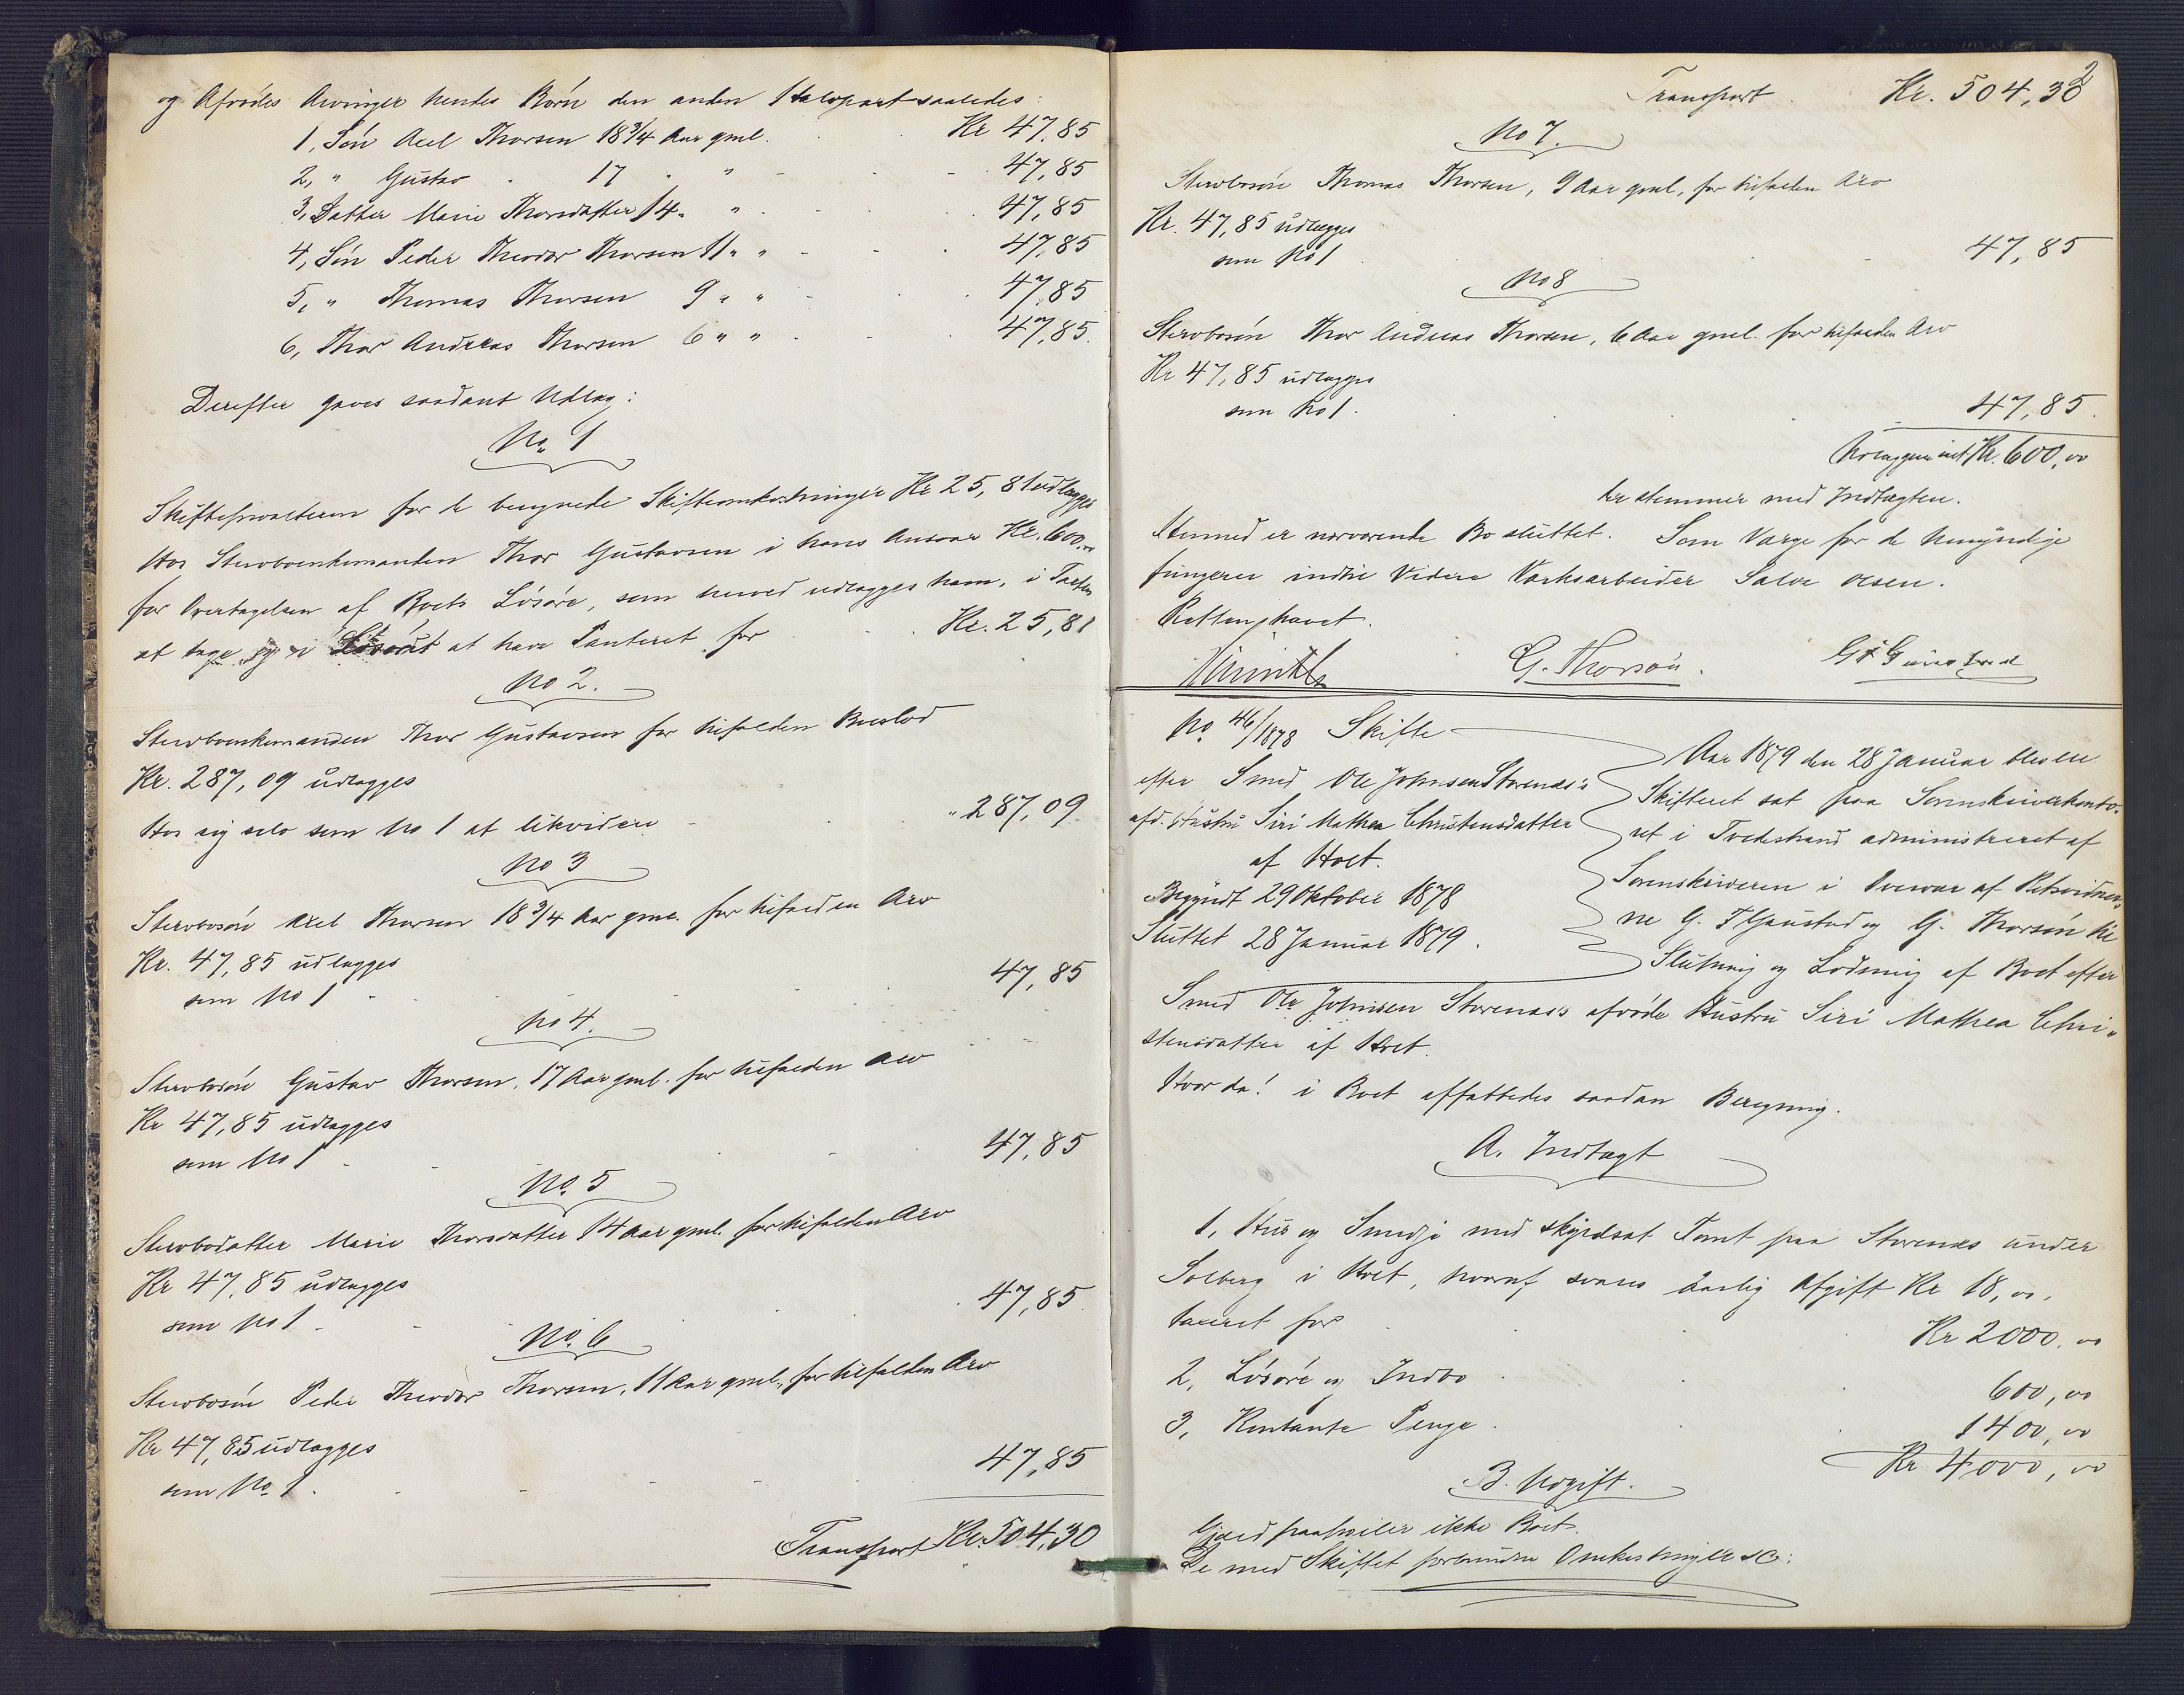 og Afdødes Arvinger hendes Børn den anden Halvpart saaledes:
1, Søn Axel Thorsen 18 3/4 Aar gml. Kr 47,85
2, " Gustav " 17 " " 47,85
3, Datter Marie Thorsdatter 14 " " 47,85
4, Søn Peder Theodor Thorsen 11 " " 47,85
5, " Thomas Thorsen 9 " " 47,85
6, Thor Andreas Thorsen 6 " " 47,85.
Derefter gaves saadant Udlæg:
No 1
Skifteforvalteren for de beregnede Skifteomkostninger Kr 25,81 udlægges
Hos Stervboenkemanden Thor Gustavsen i hans Ansvar Kr. 600,00
for Overtagelsen af Boets Løsøre, som herved udlægges ham, i Taxten
at tage og i Løsøret at have Panteret for Kr. 25,81
No 2.
Stervboenkemanden Thor Gustavsen for tilfalden Boeslod
Kr. 287,09 udlægges
Hos sig selv som No 1 at likvidere " 287,09
No 3
Stervbosøn Axel Thorsen 18 3/4 Aar gml. for tilfalden Arv
Kr. 47,85 udlægges
som No 1 47,85
No 4.
Stervbosøn Gustav Thorsen, 17 Aar gml. for tilfalden Arv
Kr 47,85 udlægges
som No 1 47,85
No. 5
Stervbodatter Marie Thorsdatter 14 Aar gml. for tilfalden Arv
Kr 47,85 udlægges
som No 1 47,85.
No. 6
Stervbosøn Peder Theodor Thorsen, 11 Aar gml., for tilfalden Arv
Kr 47,85 udlægges
som No. 1. 47,85
Transport Kr. 504,30
2
Transport Kr. 504,30
No 7.
Stervbosøn Thomas Thorsen, 9 Aar gml, for tilfalden Arv
Kr. 47,85 udlægges
som No 1 47,85
No 8
Stervbosøn Thor Andreas Thorsen, 6 Aar gml. for tilfalden Arv
Kr 47,85 udlægges
som No 1. 47,85.
Udlæggene ialt Kr. 600,00
der stemmer med Indtægten.
Hermed er nærværende Bo sluttet. Som Værge for de Umyndige
fungerer indtil Videre Værksarbeider Salve Olsen.
Retten hævet.
G. Thorsøn. G F Gaustad
No 46/1878 Skifte
efter Smed Ole Johnsen Storenæs's
afd. Hustru Siri Mathea Christensdatter
af Holt.
Begyndt 29 Oktober 1878
Sluttet 28 Januar 1879.
Aar 1879 den 28 Januar blev en
Skifteret sat paa Sorenskriverkonto-
ret i Tvedestrand administreret af
Sorenskriveren i Overvær af Retsvidner-
ne G. F Gaustad og G. Thorsøn til
Slutning og Lodning af Boet efter
Smed Ole Johnsen Storenæs's afdøde Hustru Siri Mathea Chri-
stensdatter af Holt.
Hvor da! i Boet affattedes saadan Beregning.
A. Indtægt
1, Hus og Smedje med skyldsat Tomt paa Storenæs under
Solberg i Holt, hvoraf svares aarlig Afgift Kr 18,00,
taxeret for Kr 2000,00
2, Løsøre og Indbo 600,00
3, Kontante Penge 1400,00
Kr 4000,00
B. Udgift.
Gjæld paahviler ikke Boet.
De med Skiftet forbundne Omkostninger ere: